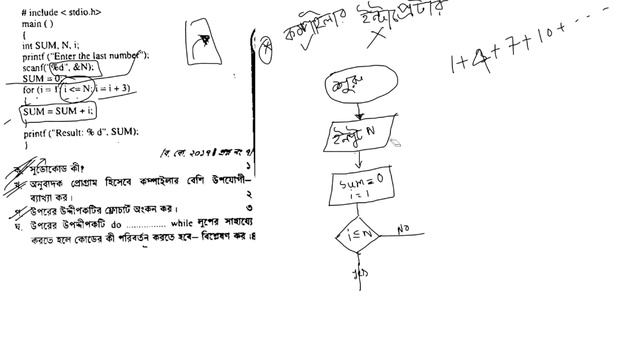 # include < stdio.h>
main ( )
{
int SUM, N, i;
printf ("Enter the last number");
scanf("%d", &N);
SUM = 0;
for (i = 1; i <= N; i = i + 3)
{
SUM = SUM + i;
}
printf ("Result: % d", SUM);
}
১
ক. সুডোকোড কী?
খ. অনুবাদক প্রোগ্রাম হিসেবে কম্পাইলার বেশি উপযোগী–
ব্যাখ্যা কর। ২
গ. উপরের উদ্দীপকটির ফ্লোচার্ট অংকন কর। ৩
ঘ. উপরের উদ্দীপকটি do ............... while লুপের সাহায্যে
করতে হলে কোডের কী পরিবর্তন করতে হবে– বিশ্লেষণ কর।৪
কম্পাইলার ইন্টারপ্রেটার
1+4+7+10+....
শুরু
ইনপুট N
Sum=0
i=1
i≤N
No
yes